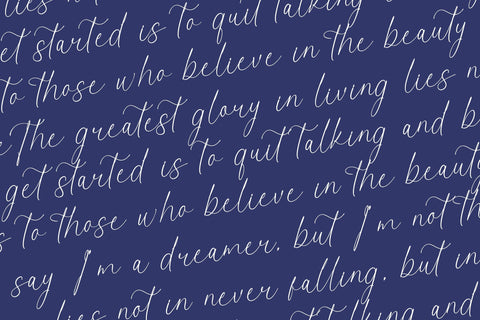 lies not in quit talking
get started is to quit talking
to those who believe in the beauty
The greatest glory in living lies n
get started is to quit talking and b
s to those who believe in the beauty
say I'm a dreamer. but I'm not th
lies not in never falling. but in
talking and